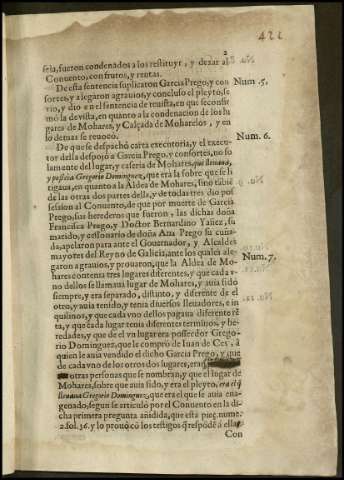 422
2
seia, fueron condenados a los restituyr, y dexar al
Conuento, con frutos, y rentas.
De esta sentencia suplicaron Garcia Prego, y con
sortes, y alegaron agrauios, y concluso el pleyto, se
vio, y dio en el sentencia de reuista, en que se confir
mò la de vista, en quanto a la condenacion de los lu
gares de Mohares, y Calçada de Mohares, y en
lo demas se reuocò.
Num. 5.
De que se despachò carta executoria, y el execu-
tor della despojò a Garcia Prego, y consortes, no so
lamente del lugar, y caseria de Mohares, que lleuaua,
y posseia Gregorio Dominguez, que era la sobre que se li
tigaua, en quanto a la Aldea de Mohares, sino tãbiẽ
de las otras dos partes della, y de todas tres dio pos
session al Conuento, de que por muerte de Garcia
Prego, sus herederos que fueron, las dichas doña
Francisca Prego, y Doctor Bernardino Yañez, su
marido, y cessionario de doña Ana Prego su cuña-
da, apelaron para ante el Gouernador, y Alcaldes
mayores del Reyno de Galicia, ante los quales ale-
garon agrauios, y prouaron, que la Aldea de Mo-
hares contenia tres lugares diferentes, y que cada v-
no dellos se llamaua lugar de Mohares, y auia sido
siempre, y era separado, distinto, y diferente de el
otro, y auia tenido, y tenia diuersos lleuadores, e in
quilinos, y que cada vno dellos pagaua diferente rẽ
ta, y que cada lugar tenia diferentes terminos, y he-
redades, y que de el vn lugar era posseedor Grego-
rio Dominguez, que le comprò de Iuan de Ces, à
quien le auia vendido el dicho Garcia Prego, y que
de cada vno de los otros dos lugares, eran
otras personas que se nombran, y que el lugar de
Mohares, sobre que auia sido, y era el pleyto, era el q̃
lleuaua Gregorio Dominguez, que era el que se auia ena-
genado, segun se articulò por el Conuento en la di-
cha primera pregunta añidida, que està pieç. nume.
2. fol. 36. y lo prouò con los testigos q̃ respõdẽ à ella,
Con
Num. 6.
Num. 7.